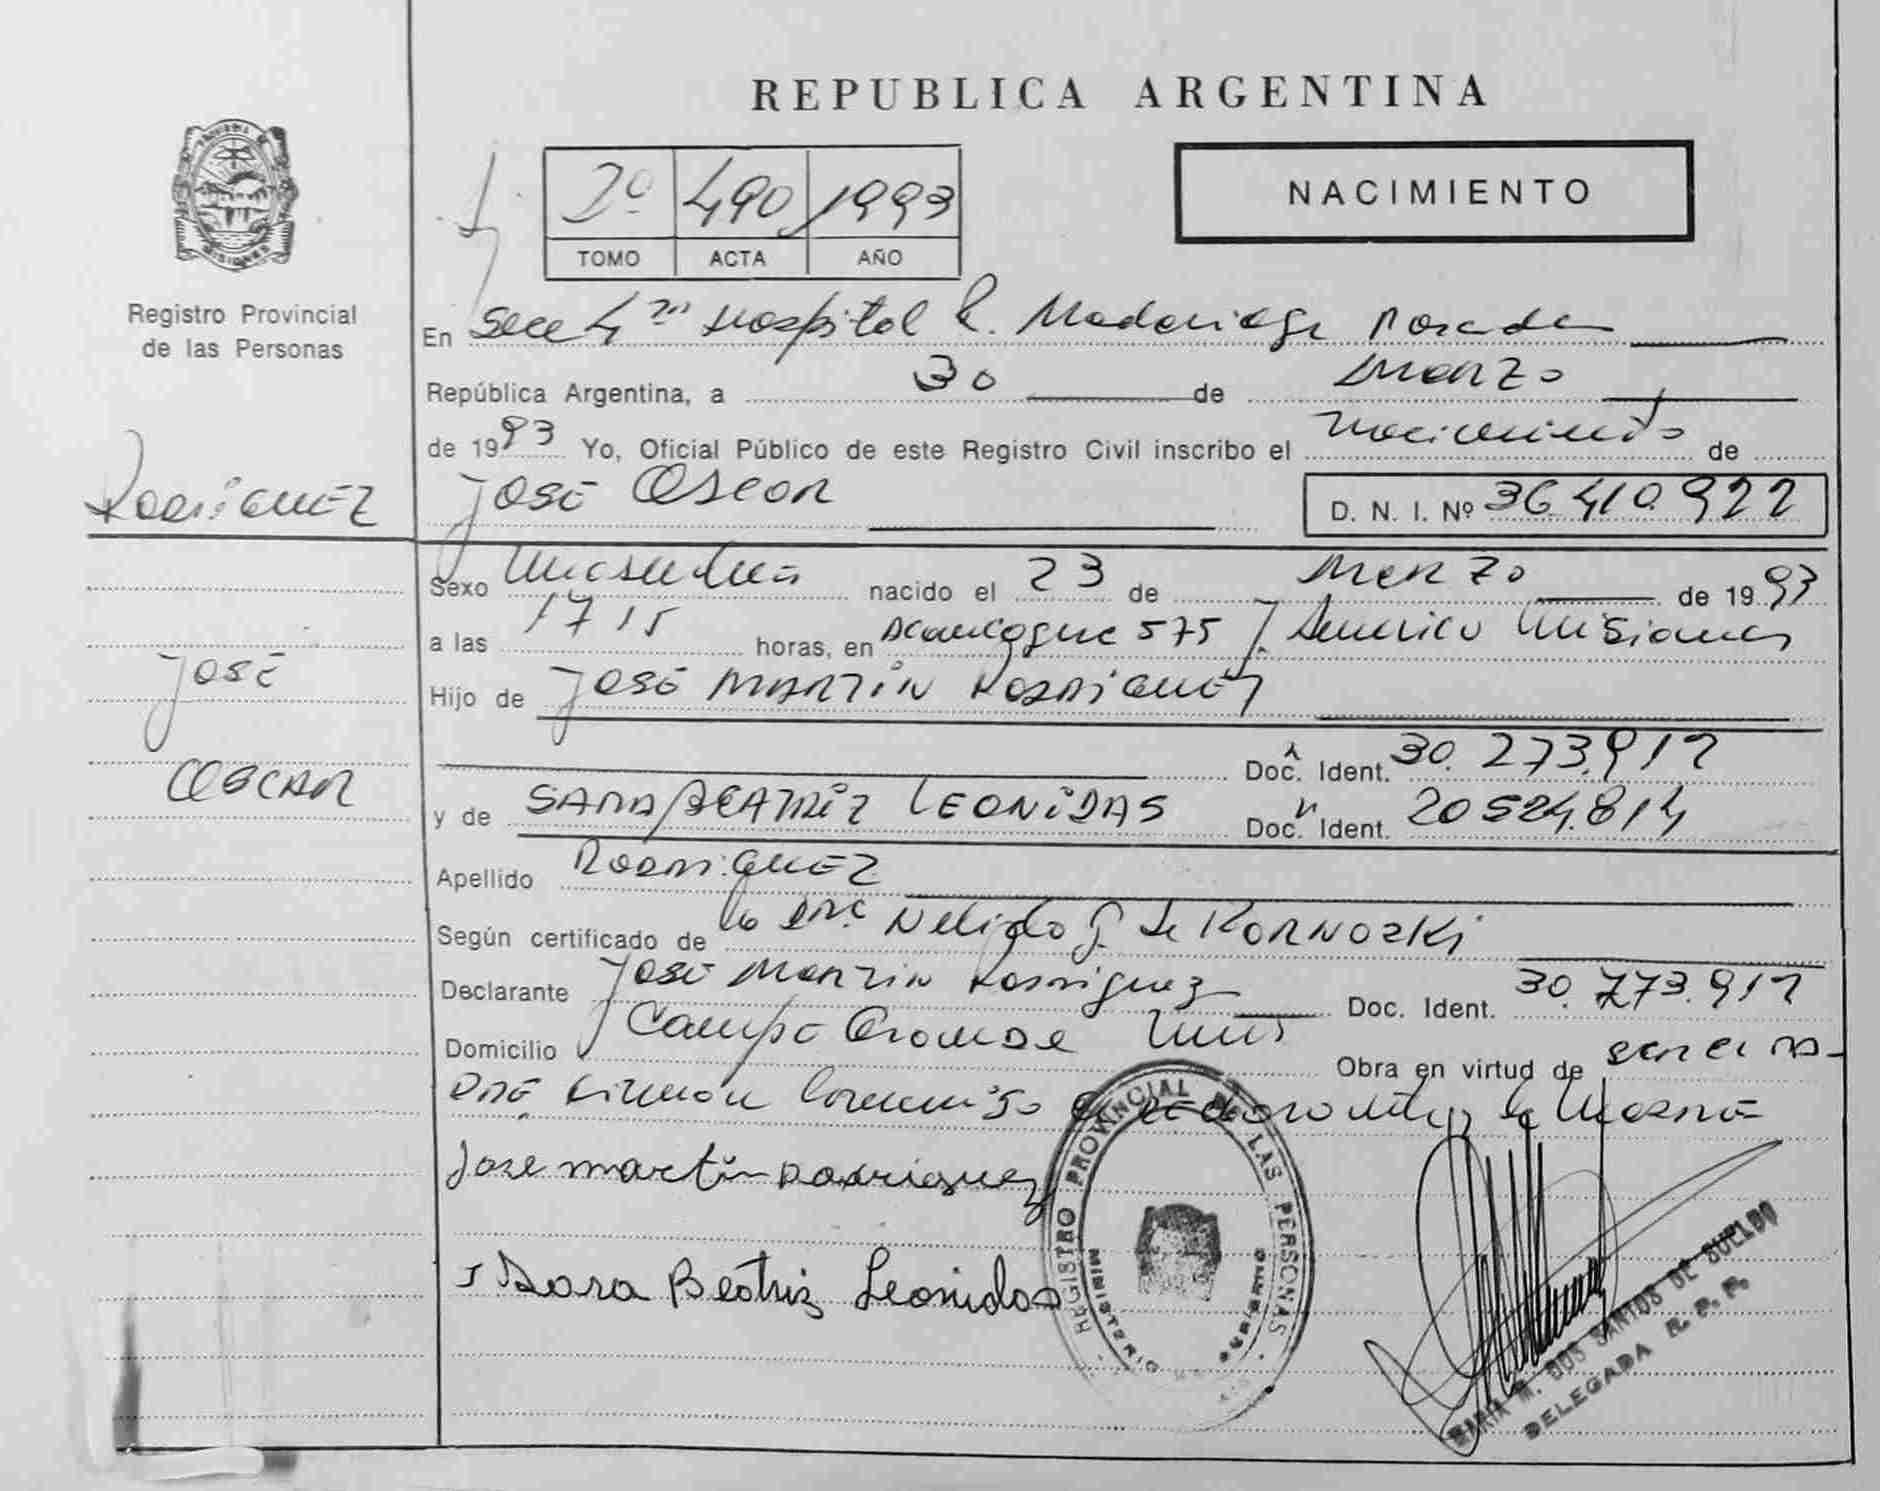 REPUBLICA ARGENTINA
NACIMIENTO
2º 490 1993
TOMO ACTA AÑO
MISIONES
Registro Provincial
de las Personas
En Secc 4ta Hospital R. Madariaga Posadas
República Argentina, a 30 de Marzo
de 1993 Yo, Oficial Público de este Registro Civil inscribo el nacimiento de
José Oscar D. N. I. Nº 36.410.922
RODRIGUEZ
Sexo Masculino nacido el 23 de Marzo de 1993
a las 17 15 horas, en 575 J. America Misiones
JOSÉ
Hijo de JOSÉ MARTIN RODRIGUEZ
Doc. Ident. 30.273.917
OSCAR
y de SARA BEATRIZ LEONIDAS Doc. Ident. 20524.814
Apellido RODRIGUEZ
Según certificado de la Dra. Nelida G. de KORNOZKI
Declarante José Martin Rodriguez Doc. Ident. 30.773.917
Domicilio Campo Grande Mnes Obra en virtud de
la Madre
Jose martin Rodriguez
Sara Beatriz Leonidas
REGISTRO PROVINCIAL DE LAS PERSONAS
MINISTERIO GOBIERNO
MARIA M. DOS SANTOS DE SUELDO
DELEGADA R. P. P.